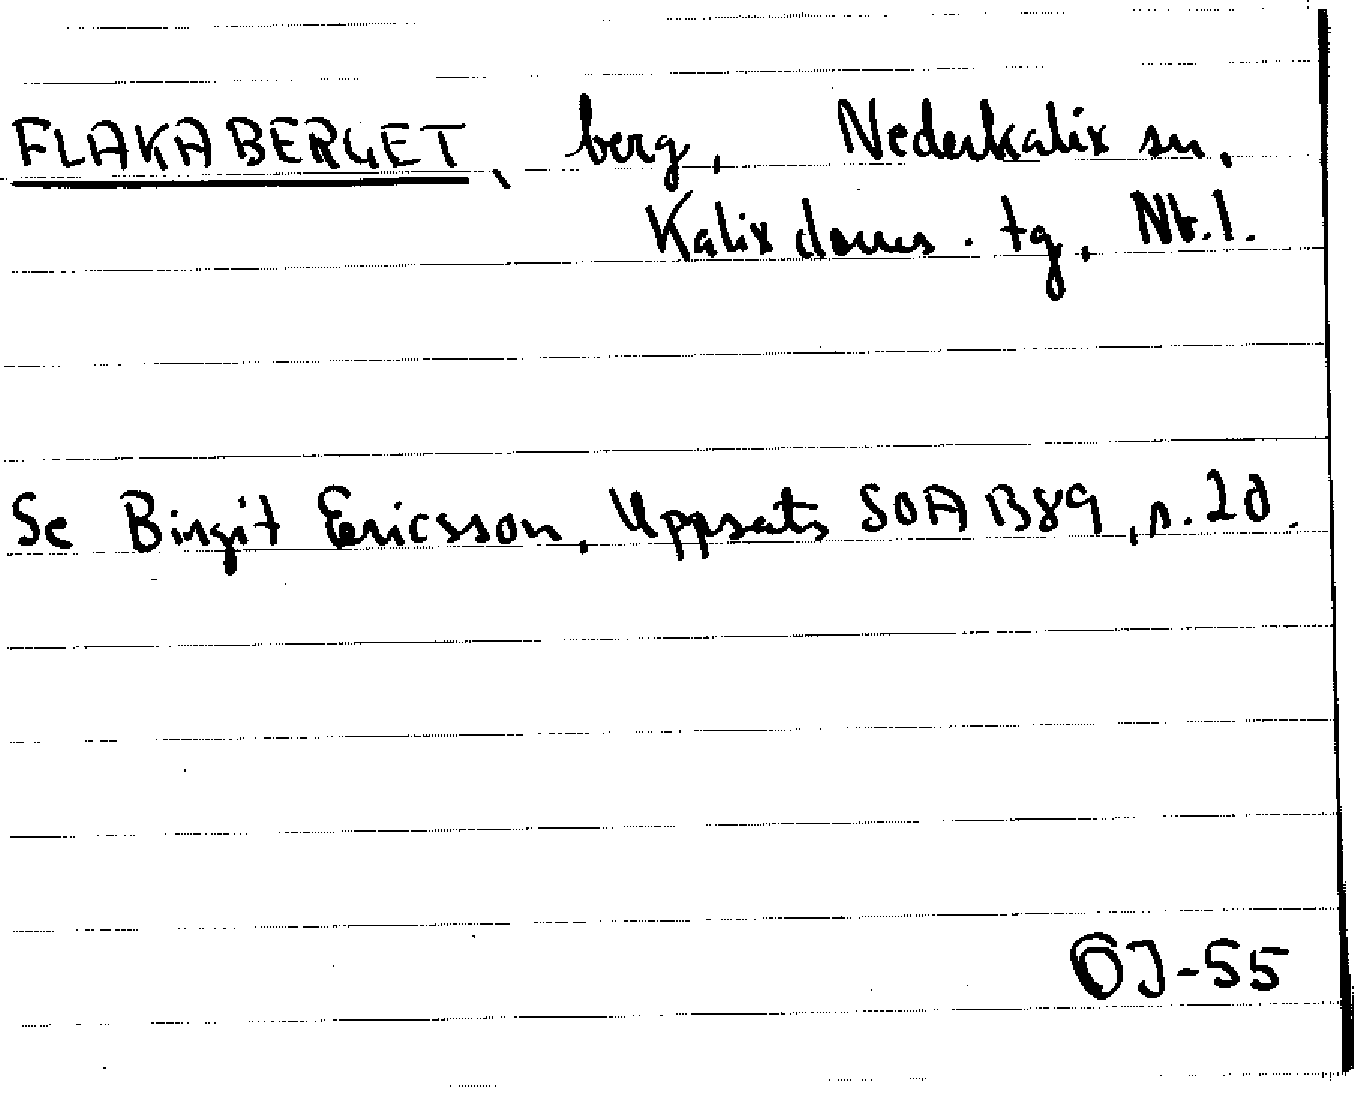 FLAKABERGET, berg, Nederkalix sn,
Kalix doms. tg, Nb.l.
Se Birgit Ericsson, Uppsats SOA B89, s. 20.
OJ-55